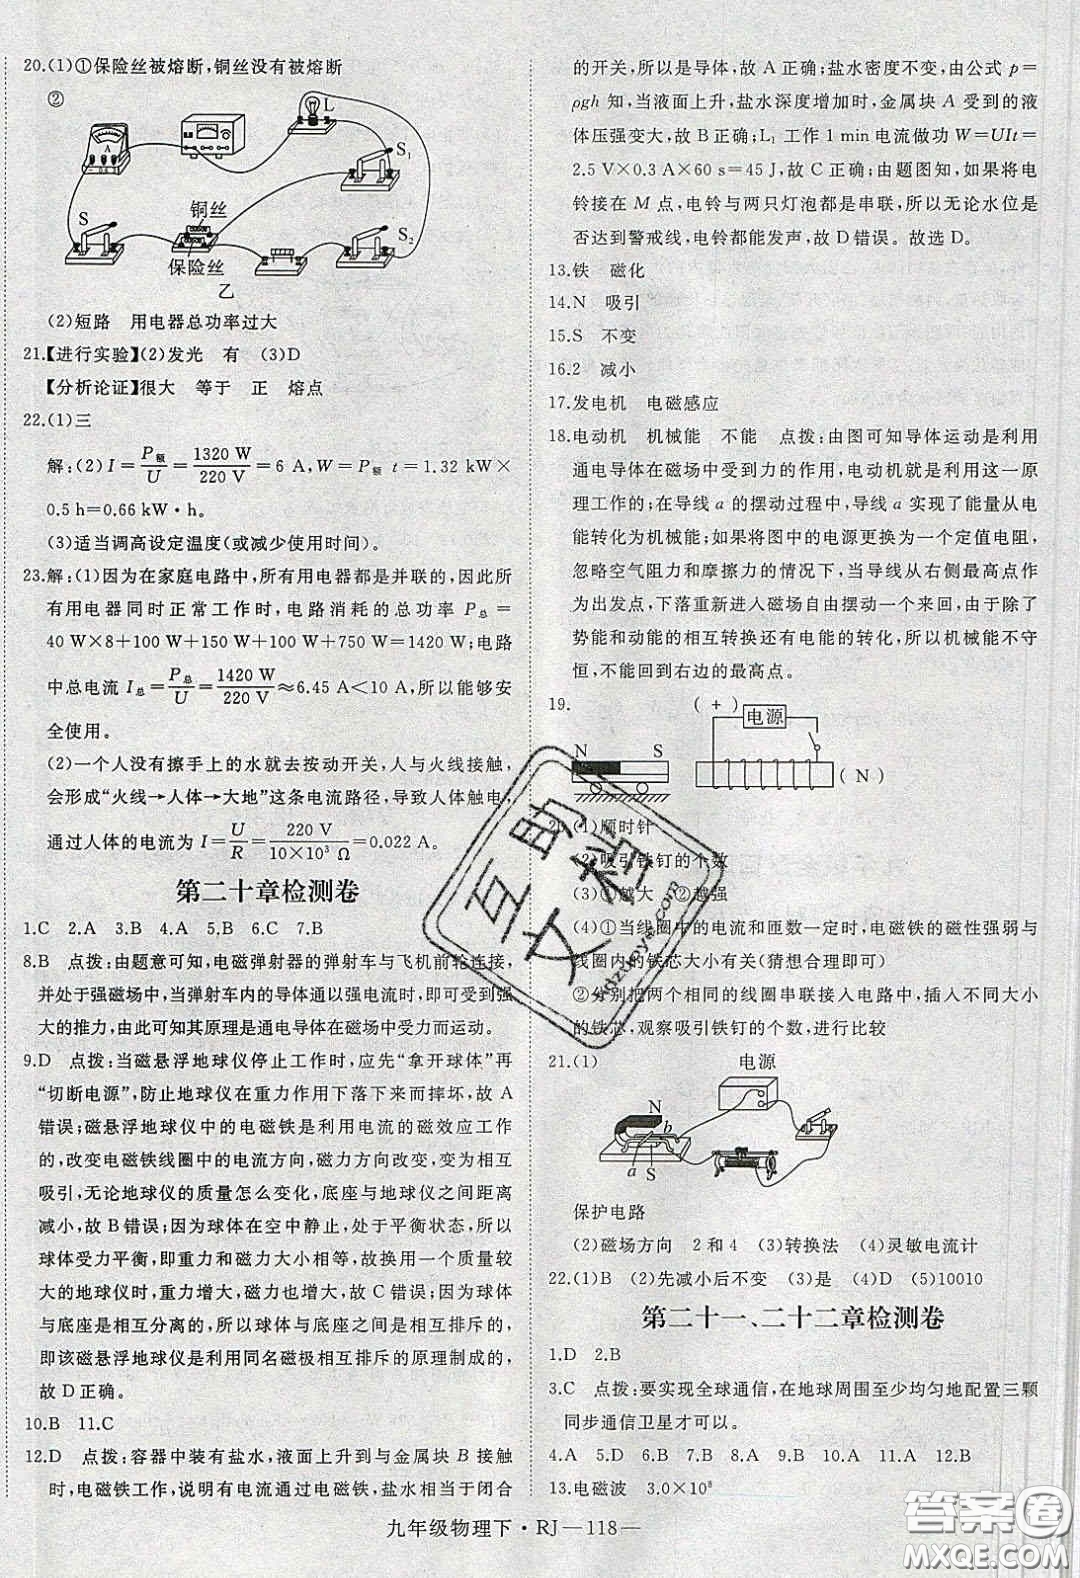 20.(1)①保险丝被熔断,铜丝没有被熔断
②
L
A
S₁
S
铜丝
S₂
保险丝
乙
(2)短路 用电器总功率过大
21.【进行实验】(2)发光 有 (3)D
【分析论证】很大 等于 正 熔点
22.(1)三
解:(2)I=P额/U=1320 W/220 V=6 A,W=P额 t=1.32 kW×
0.5 h=0.66 kW·h。
(3)适当调高设定温度(或减少使用时间)。
23.解:(1)因为在家庭电路中,所有用电器都是并联的,因此所
有用电器同时正常工作时,电路消耗的总功率 P总=
40 W×8+100 W+150 W+100 W+750 W=1420 W;电路
中总电流 I总=P总/U=1420 W/220 V≈6.45 A<10 A,所以能够安
全使用。
(2)一个人没有擦手上的水就去按动开关,人与火线接触,
会形成“火线→人体→大地”这条电流路径,导致人体触电,
通过人体的电流为 I=U/R=220 V/10×10³ Ω=0.022 A。
第二十章检测卷
1.C 2.A 3.B 4.A 5.B 6.C 7.B
8.B 点拨:由题意可知,电磁弹射器的弹射车与飞机前轮连接,
并处于强磁场中,当弹射车内的导体通以强电流时,即可受到强
大的推力,由此可知其原理是通电导体在磁场中受力而运动。
9.D 点拨:当磁悬浮地球仪停止工作时,应先“拿开球体”再
“切断电源”,防止地球仪在重力作用下落下而摔坏,故 A
错误;磁悬浮地球仪中的电磁铁是利用电流的磁效应工作
的,改变电磁铁线圈中的电流方向,磁力方向改变,变为
吸引,无论地球仪的质量怎么变化,底座与地球仪之间距离
减小,故 B 错误;因为球体在空中静止,处于平衡状态,所以
球体受力平衡,即重力和磁力大小相等,故换用一个质量较
大的地球仪时,重力增大,磁力增大,故 C 错误;由于球体
与底座是相互分离的,所以球体与底座是相互排斥的,
即该磁悬浮地球仪是利用同名磁极相互排斥的原理制成的,
故 D 正确。
10.B 11.C
12.D 点拨:容器中装有盐水,液面上升到与金属块 B 接触
时,电磁铁工作,说明有电流通过电磁铁,盐水相当于闭合
的开关,所以是导体,故 A 正确;盐水密度不变,由公式 p=
ρgh 知,当液面上升,盐水深度增加时,金属块 A 受到的液
体压强变大,故 B 正确;L₁ 工作 1 min 电流做功 W=UIt=
2.5 V×0.3 A×60 s=45 J,故 C 正确;由题图知,如果将电
铃接在 M 点,电铃与两只灯泡都是串联,所以无论水位是
否达到警戒线,电铃都能发声,故 D 错误。故选 D。
13.铁 磁化
14.N 吸引
15.S 不变
16.2 减小
17.发电机 电磁感应
18.电动机 机械能 不能 点拨:由图可知导体运动是利用
通电导体在磁场中受到力的作用,电动机就是利用这一原
理工作的;在导线 a 的摆动过程中,导线 a 实现了能量从电
能转化为机械能;如果将图中的电源更换为一个定值电阻,
忽略空气阻力和摩擦力的情况下,当导线从右侧最高点作
为出发点,下落重新进入磁场自由摆动一个来回,由于除了
势能和动能的相互转换还有电能的转化,所以机械能不守
恒,不能回到右边的最高点。
19.
(+)
电源
N S
(N)
20.(1)顺时针
(2)吸引铁钉的个数
(3)①越大 ②越强
(4)①当线圈中的电流和匝数一定时,电磁铁的磁性强弱与
线圈内的铁芯大小有关(猜想合理即可)
②分别把两个相同的线圈串联接入电路中,插入不同大小
的铁芯,观察吸引铁钉的个数,进行比较
21.(1)
电源
N
b
a S
保护电路
(2)磁场方向 2 和 4 (3)转换法 (4)灵敏电流计
22.(1)B (2)先减小后不变 (3)是 (4)D (5)10010
第二十一、二十二章检测卷
1.D 2.B
3.C 点拨:要实现全球通信,在地球周围至少均匀地配置三颗
同步通信卫星才可以。
4.A 5.D 6.B 7.B 8.A 9.B 10.A 11.A 12.B
13.电磁波 3.0×10⁸
九年级物理下·RJ—118—
互助文档
答案圈
MXQE.COM